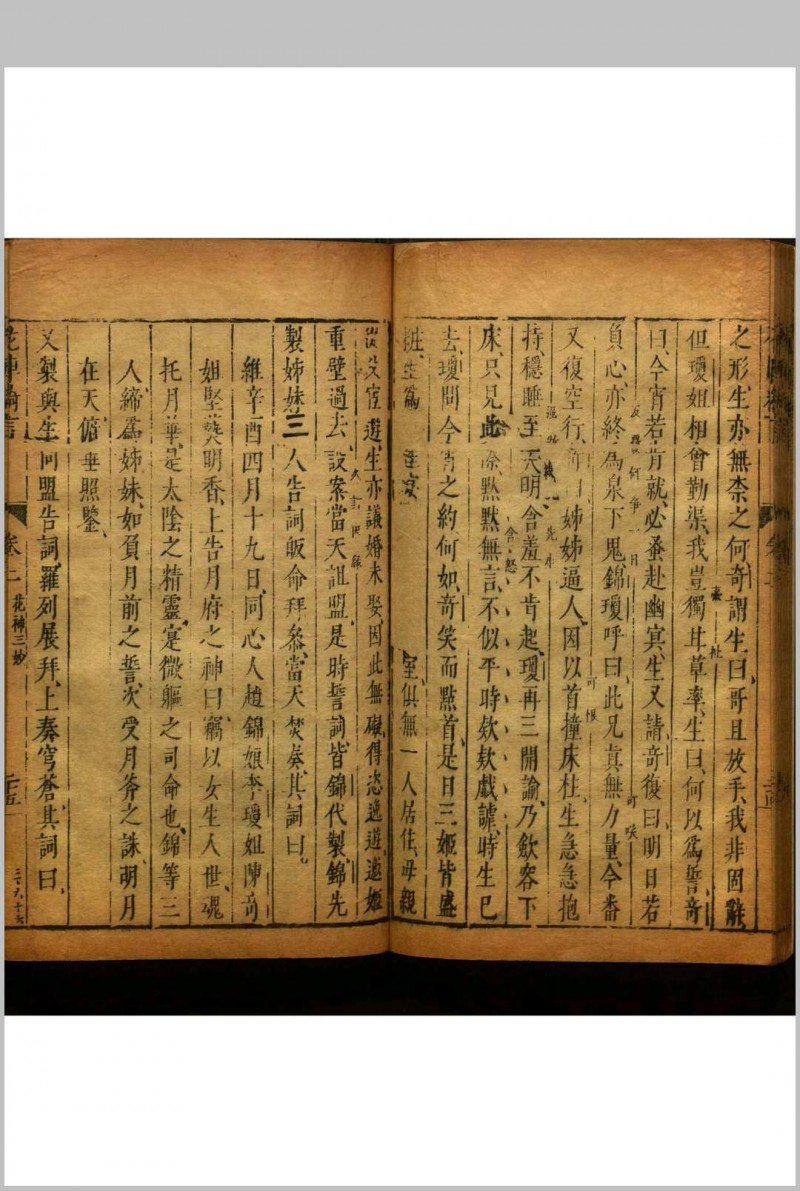 之形生亦無柰之何奇謂生曰哥且放手我非固辭
但瓊姐相會勤渠我豈獨甘草率生曰何以為誓奇
曰今宵若肯就必蚤赴幽冥生又請奇復曰明日若
負心亦終為泉下鬼錦瓊呼曰此兄真無力量今番
又復空行奇曰姊姊逼人因以首撞床柱生急急抱
持穩睡至天明含羞不肯起瓊再三開諭乃飲容下
床只見此際默默無言不似平時欸欸戲謔時生已
去瓊問今宵之約何如奇笑而點首是日三姬皆盛
粧生為
室俱無一人居住母親
宦遊生亦議婚未娶因此無礙得恣逸遊邀姬
重壁過去設案當天詛盟是時誓詞皆錦代製錦先
製姊妹三人告詞皈命拜叅當天焚奏其詞曰
維辛酉四月十九日同心人趙錦娘李瓊姐陳奇
姐堅爇明香上告月府之神曰竊以女生人世魂
托月華是太陰之精靈寔微軀之司命也錦等三
人締為姊妹如負月前之誓次受月斧之誅明月
在天俯垂照鑒
又製與生同盟告詞羅列展拜上奏穹蒼其詞曰
卷二 花神三妙